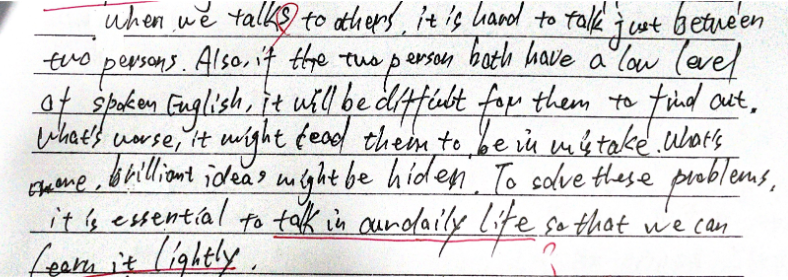 when we talks to others, it is hard to talk just between
two persons. Also, if the two person both have a low level
of spoken English, it will be difficult for them to find out.
What's worse, it might lead them to be in mistake. What's
more, brilliant ideas might be hiden. To solve these problems,
it is essential to talk in our daily life so that we can
learn it lightly.
?